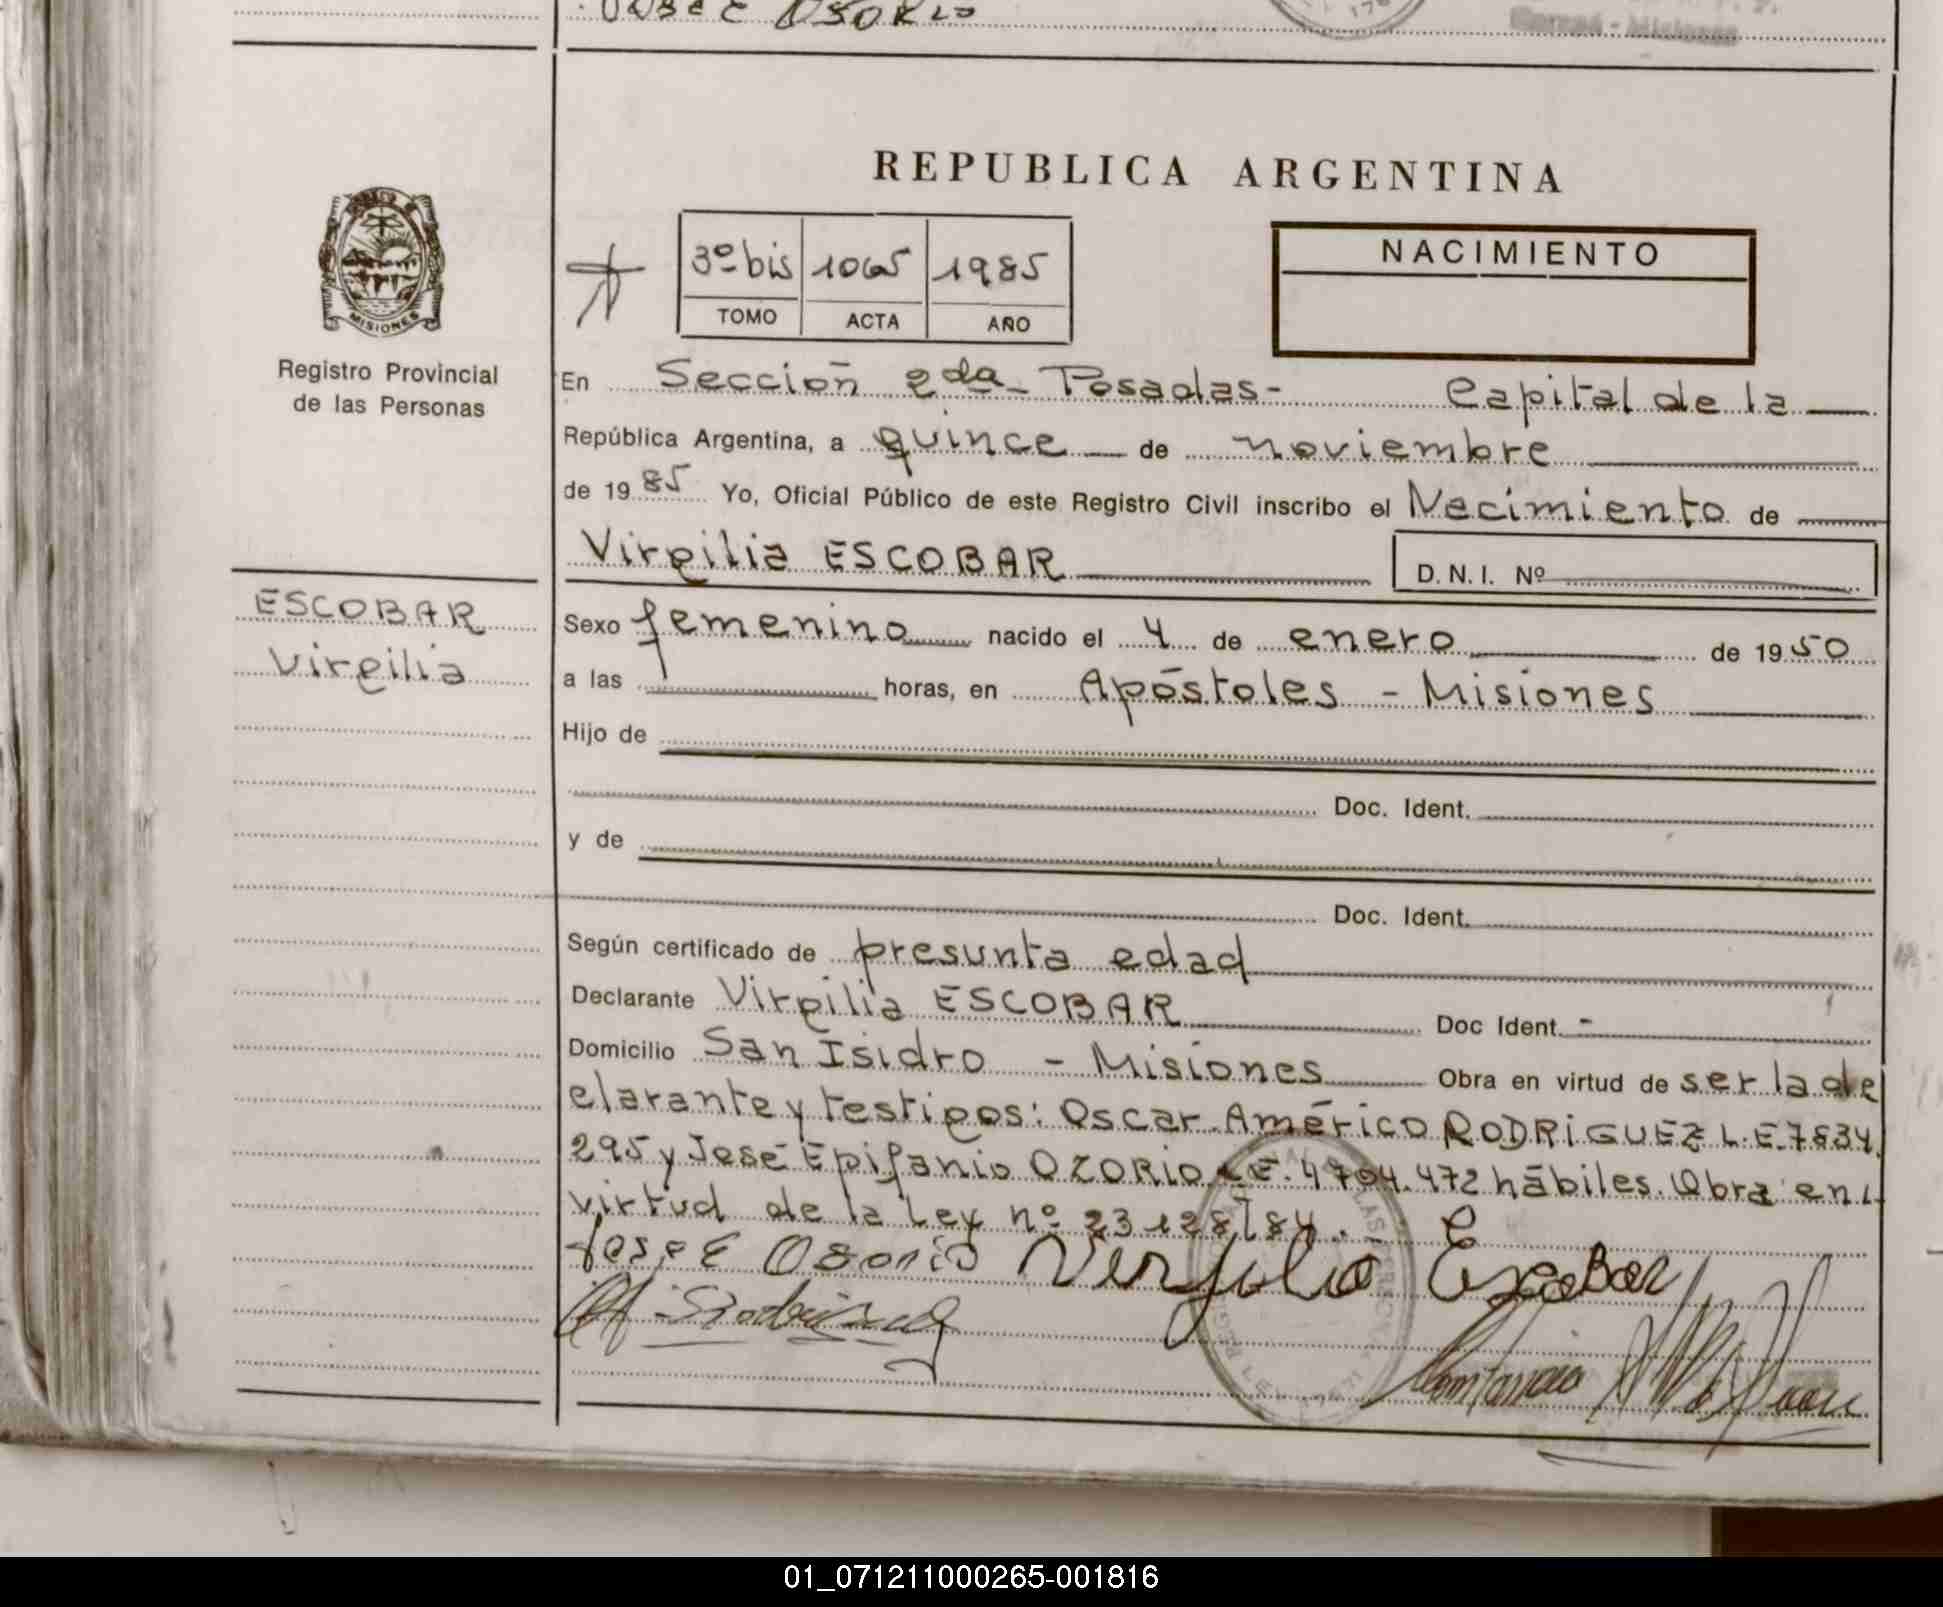 José E OSORIO
REPUBLICA ARGENTINA
3º bis 1065 1985
TOMO ACTA AÑO
NACIMIENTO
MISIONES
Registro Provincial
de las Personas
En Sección 2da - Posadas - Capital de la
República Argentina, a quince de noviembre
de 1985 Yo, Oficial Público de este Registro Civil inscribo el Nacimiento de
Virgilia ESCOBAR
D.N.I. Nº
ESCOBAR
Virgilia
Sexo femenino nacido el 4 de enero de 1950
a las horas, en Apóstoles - Misiones
Hijo de
Doc. Ident.
y de
Doc. Ident.
Según certificado de presunta edad
Declarante Virgilia ESCOBAR Doc Ident. -
Domicilio San Isidro - Misiones Obra en virtud de ser la de
clarante y testigos: Oscar Américo RODRIGUEZ L.E. 7.834.
295 y José Epifanio OZORIO L.E. 4704.472 hábiles. Obra en
virtud de la Ley nº 23128/84.
José E Osorio Virjilia Escobar
01_071211000265-001816